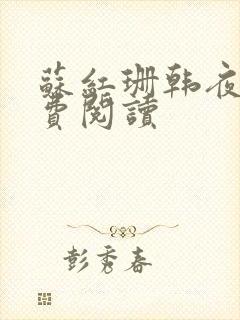 蘇紅珊韩夜
費閱讀
彭秀春